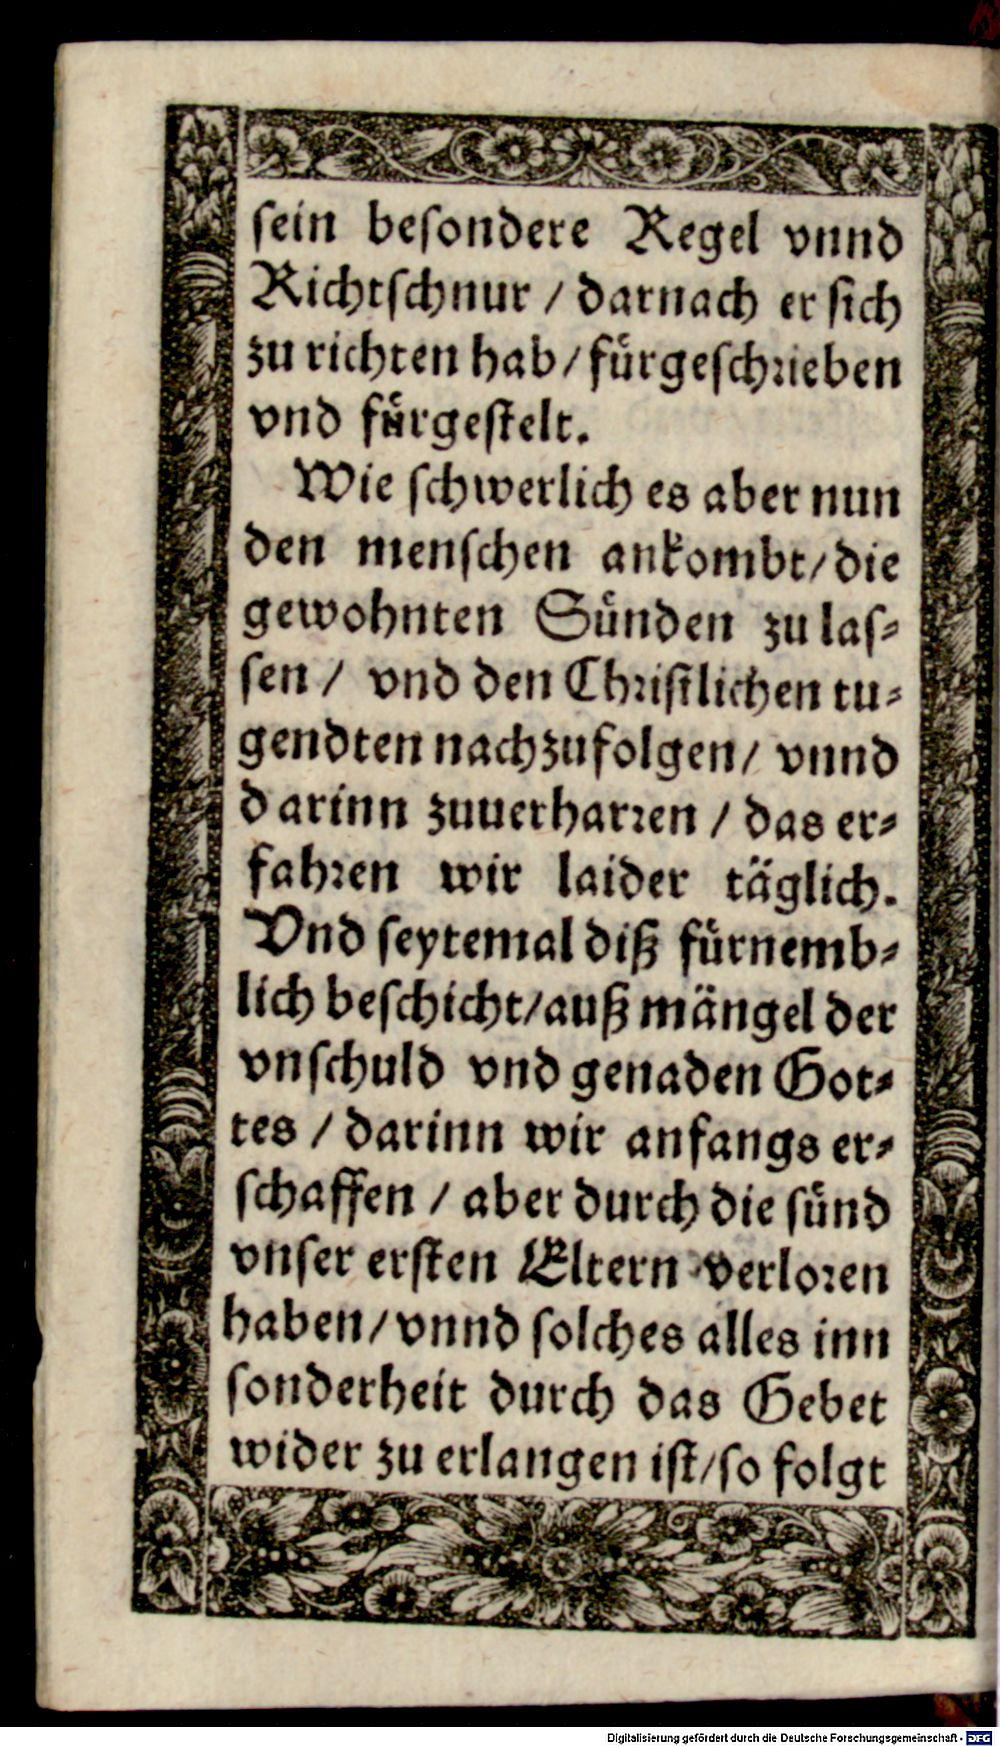 sein besondere Regel vnnd
Richtschnur / darnach er sich
zu richten hab / fuͤrgeschrieben
vnd fuͤrgestelt.
Wie schwerlich es aber nun
den menschen ankombt / die
gewohnten Suͤnden zu las⸗
sen / vnd den Christlichen tu⸗
gendten nachzufolgen / vnnd
darinn zuuerharren / das er⸗
fahren wir laider taͤglich.
Vnd seytemal diß fuͤrnemb⸗
lich beschicht / auß maͤngel der
vnschuld vnd genaden Got⸗
tes / darinn wir anfangs er⸗
schaffen / aber durch die suͤnd
vnser ersten Eltern verloren
haben / vnnd solches alles inn
sonderheit durch das Gebet
wider zu erlangen ist / so folgt
Digitalisierung gefördert durch die Deutsche Forschungsgemeinschaft - DFG